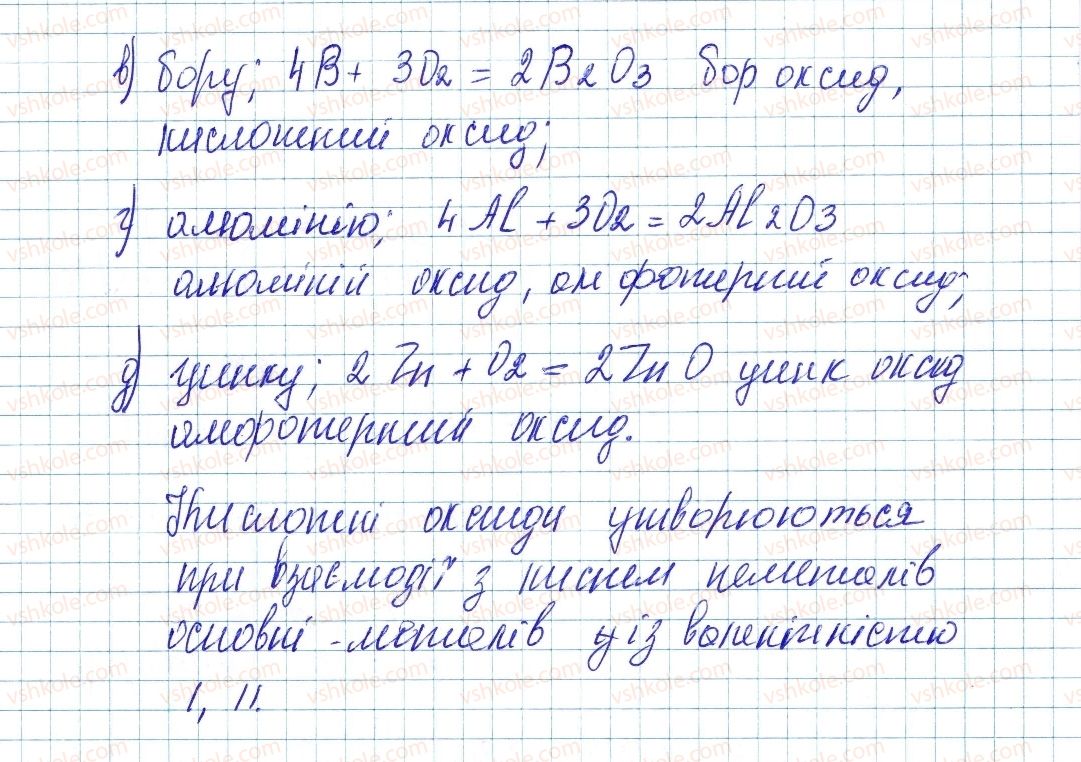 в) бору; 4B + 3O2 = 2B2O3 бор оксид,
кислотний оксид;
г) алюмінію; 4Al + 3O2 = 2Al2O3
алюміній оксид, амфотерний оксид;
д) цинку; 2Zn + O2 = 2ZnO цинк оксид
амфотерний оксид.
Кислотні оксиди утворюються
при взаємодії з киснем неметалів
основні - металів із валентністю
I, II.